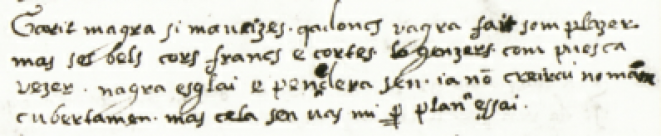 Garit magra si maueizes. qadoncs uagra fait som plazer.
mas sel bels cors francs e cortes. lo genzers com puesca
uezer. nagra esglai e pendera sen. ia nõ creirai no mam
cubertamen. mas cela sen uas mi ꝑ plan essai.